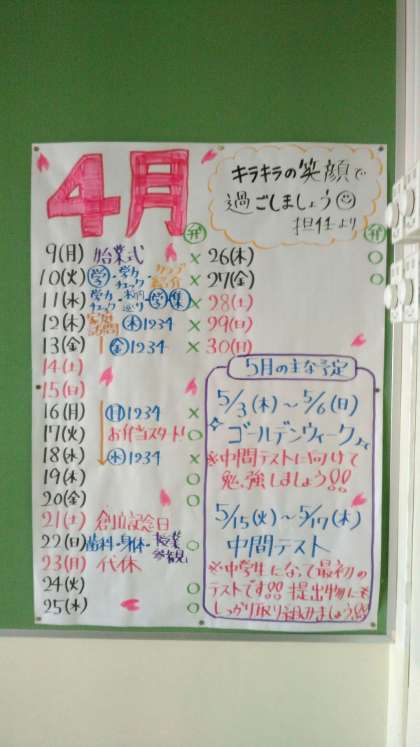 4月
キラキラの笑顔で
過ごしましょう☺
担任より
弁
弁
9(月) 始業式 ×
10(火) 学・学力チェック・カップ紹介 ×
11(水) 学力チェック・校内巡り・学集 ×
12(木) ㊍1234 ×
13(金) ㊎1234 ×
14(土)
15(日)
16(月) ㊐1234 ×
17(火) お弁当スタート! ○
18(水) ㊌1234 ×
19(木) ○
20(金) ○
21(土) 創立記念日
22(日) 歯科・身体・授業参観 ○
23(月) 代休
24(火) ○
25(水) ○
26(木) ○
27(金) ○
28(土)
29(日)
30(月)
5月の主な予定
5/3(木)～5/6(日)
ゴールデンウィーク
※中間テストに向けて
勉強しましょう!!
5/15(火)～5/17(木)
中間テスト
※中学生になって最初の
テストです!! 提出物にも
しっかり取り組みましょう!!